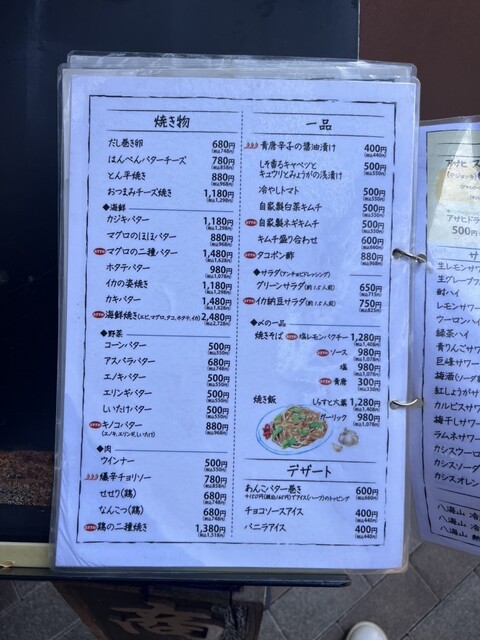 焼き物
だし巻き卵 680円
(税込748円)
はんぺんバターチーズ 780円
(税込858円)
とん平焼き 880円
(税込968円)
おつまみチーズ焼き 1,180円
(税込1,298円)
◆海鮮
カジキバター 1,180円
(税込1,298円)
マグロのほほバター 880円
(税込968円)
マグロの二種バター 1,480円
(税込1,628円)
ホタテバター 980円
(税込1,078円)
イカの姿焼き 1,180円
(税込1,298円)
カキバター 1,480円
(税込1,628円)
海鮮焼き(エビ,マグロ,タコ,ホタテ,イカ) 2,480円
(税込2,728円)
◆野菜
コーンバター 500円
(税込550円)
アスパラバター 680円
(税込748円)
エノキバター 500円
(税込550円)
エリンギバター 500円
(税込550円)
しいたけバター 500円
(税込550円)
キノコバター 880円
(エノキ,エリンギ,しいたけ) (税込968円)
◆肉
ウインナー 500円
(税込550円)
爆辛チョリソー 780円
(税込858円)
せせり(鶏) 680円
(税込748円)
なんこつ(鶏) 680円
(税込748円)
鶏の二種焼き 1,380円
(税込1,518円)
一品
青唐辛子の醤油漬け 400円
(税込440円)
しそ香るキャベツと
キュウリとみょうがの浅漬け 500円
(税込550円)
冷やしトマト 500円
(税込550円)
自家製白菜キムチ 500円
(税込550円)
自家製ネギキムチ 500円
(税込550円)
キムチ盛り合わせ 600円
(税込660円)
タコポン酢 880円
(税込968円)
◆サラダ(アンチョビドレッシング)
グリーンサラダ(約1.5人前) 650円
(税込715円)
イカ納豆サラダ(約1.5人前) 750円
(税込825円)
◆〆の一品
焼きそば 塩レモンパクチー 1,280円
(税込1,408円)
ソース 980円
(税込1,078円)
塩 980円
(税込1,078円)
青唐 300円
(税込330円)
焼き飯 しらすと大葉 1,280円
(税込1,408円)
ガーリック 980円
(税込1,078円)
デザート
あんこバター巻き 600円
(税込660円)
チョコソースアイス 400円
(税込440円)
バニラアイス 400円
(税込440円)
アサヒ ス
アサヒドラ
500円
サ
生レモンサワ
生グレープフ
酎ハイ
レモンサワー
ウーロンハイ
緑茶ハイ
青りんごサワ
巨峰サワー
梅酒(ソーダ
紅しょうがサ
カルピスサワ
梅干しサワー
ラムネサワー
カシスウーロ
カシスソーダ
カシスオレン
八海山 冷
八海山
八海山